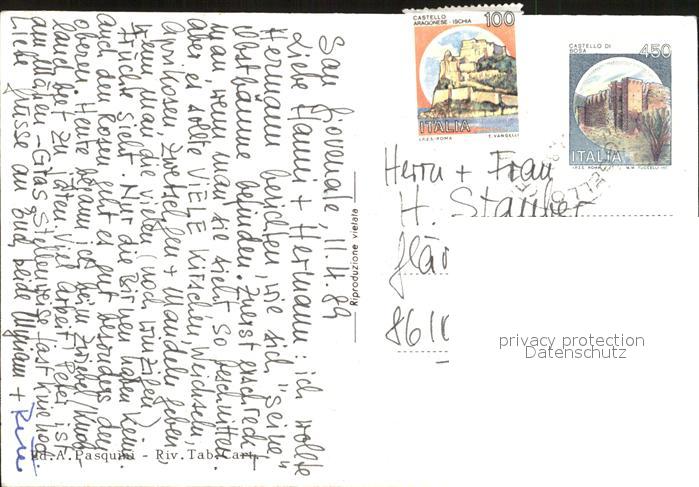 San Giovenale, 11.4.89
Liebe Hanni + Hermann: ich wollte
Hermann berichten, wie sich "seine"
Obstbäume befinden. Zuerst erschreckt
man, wenn man sie sieht so geschnitten
aber es sollte VIELE Kirschen, Weichseln,
Aprikosen, Zwetschgen + Mandeln geben,
wenn man die vielen (noch winzigen)
Früchte sieht. Nur die Birnen haben keine.
Auch den Rosen geht es gut besonders den
oberen. Heute begann ich beim Zwiebel/Knob-
lauchbeet zu jäten. Viel Arbeit! Peter ist
am Mähen - Gras stellenweise fast kniehoch.
Liebe Grüsse an Euch beide Myriam +
Ed. A. Pasquini - Riv. Tab. Cart.
Riproduzione vietata
CASTELLO ARAGONESE - ISCHIA
100
ITALIA
I.P.Z.S. ROMA
E. VANGELLI
CASTELLO DI
ROSA
450
ITALIA
I.P.Z.S. ROMA
Herrn + Frau
H. Stauber
861
privacy protection
Datenschutz